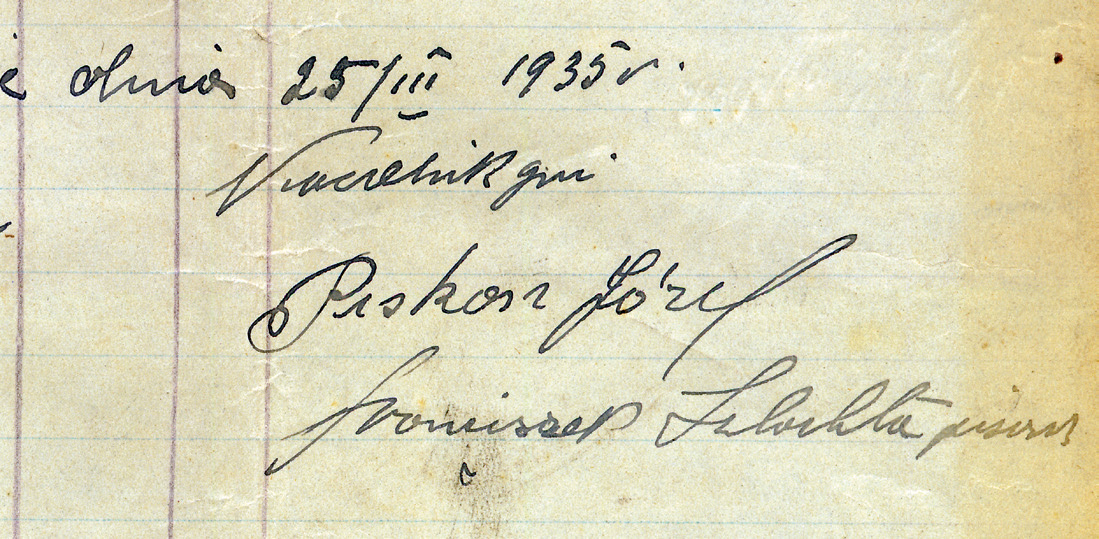 dnia 25/III 1935 r.
Naczelnik gmi
Piskorz Józef
Franciszek Szlachta pisarz